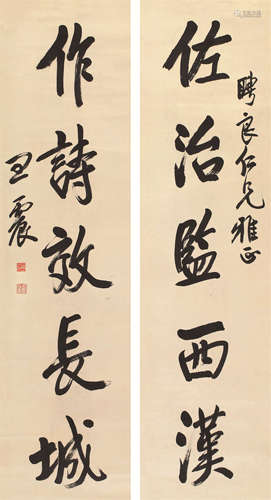 佐治監西漢
聘良仁兄雅正
作詩效長城
王震